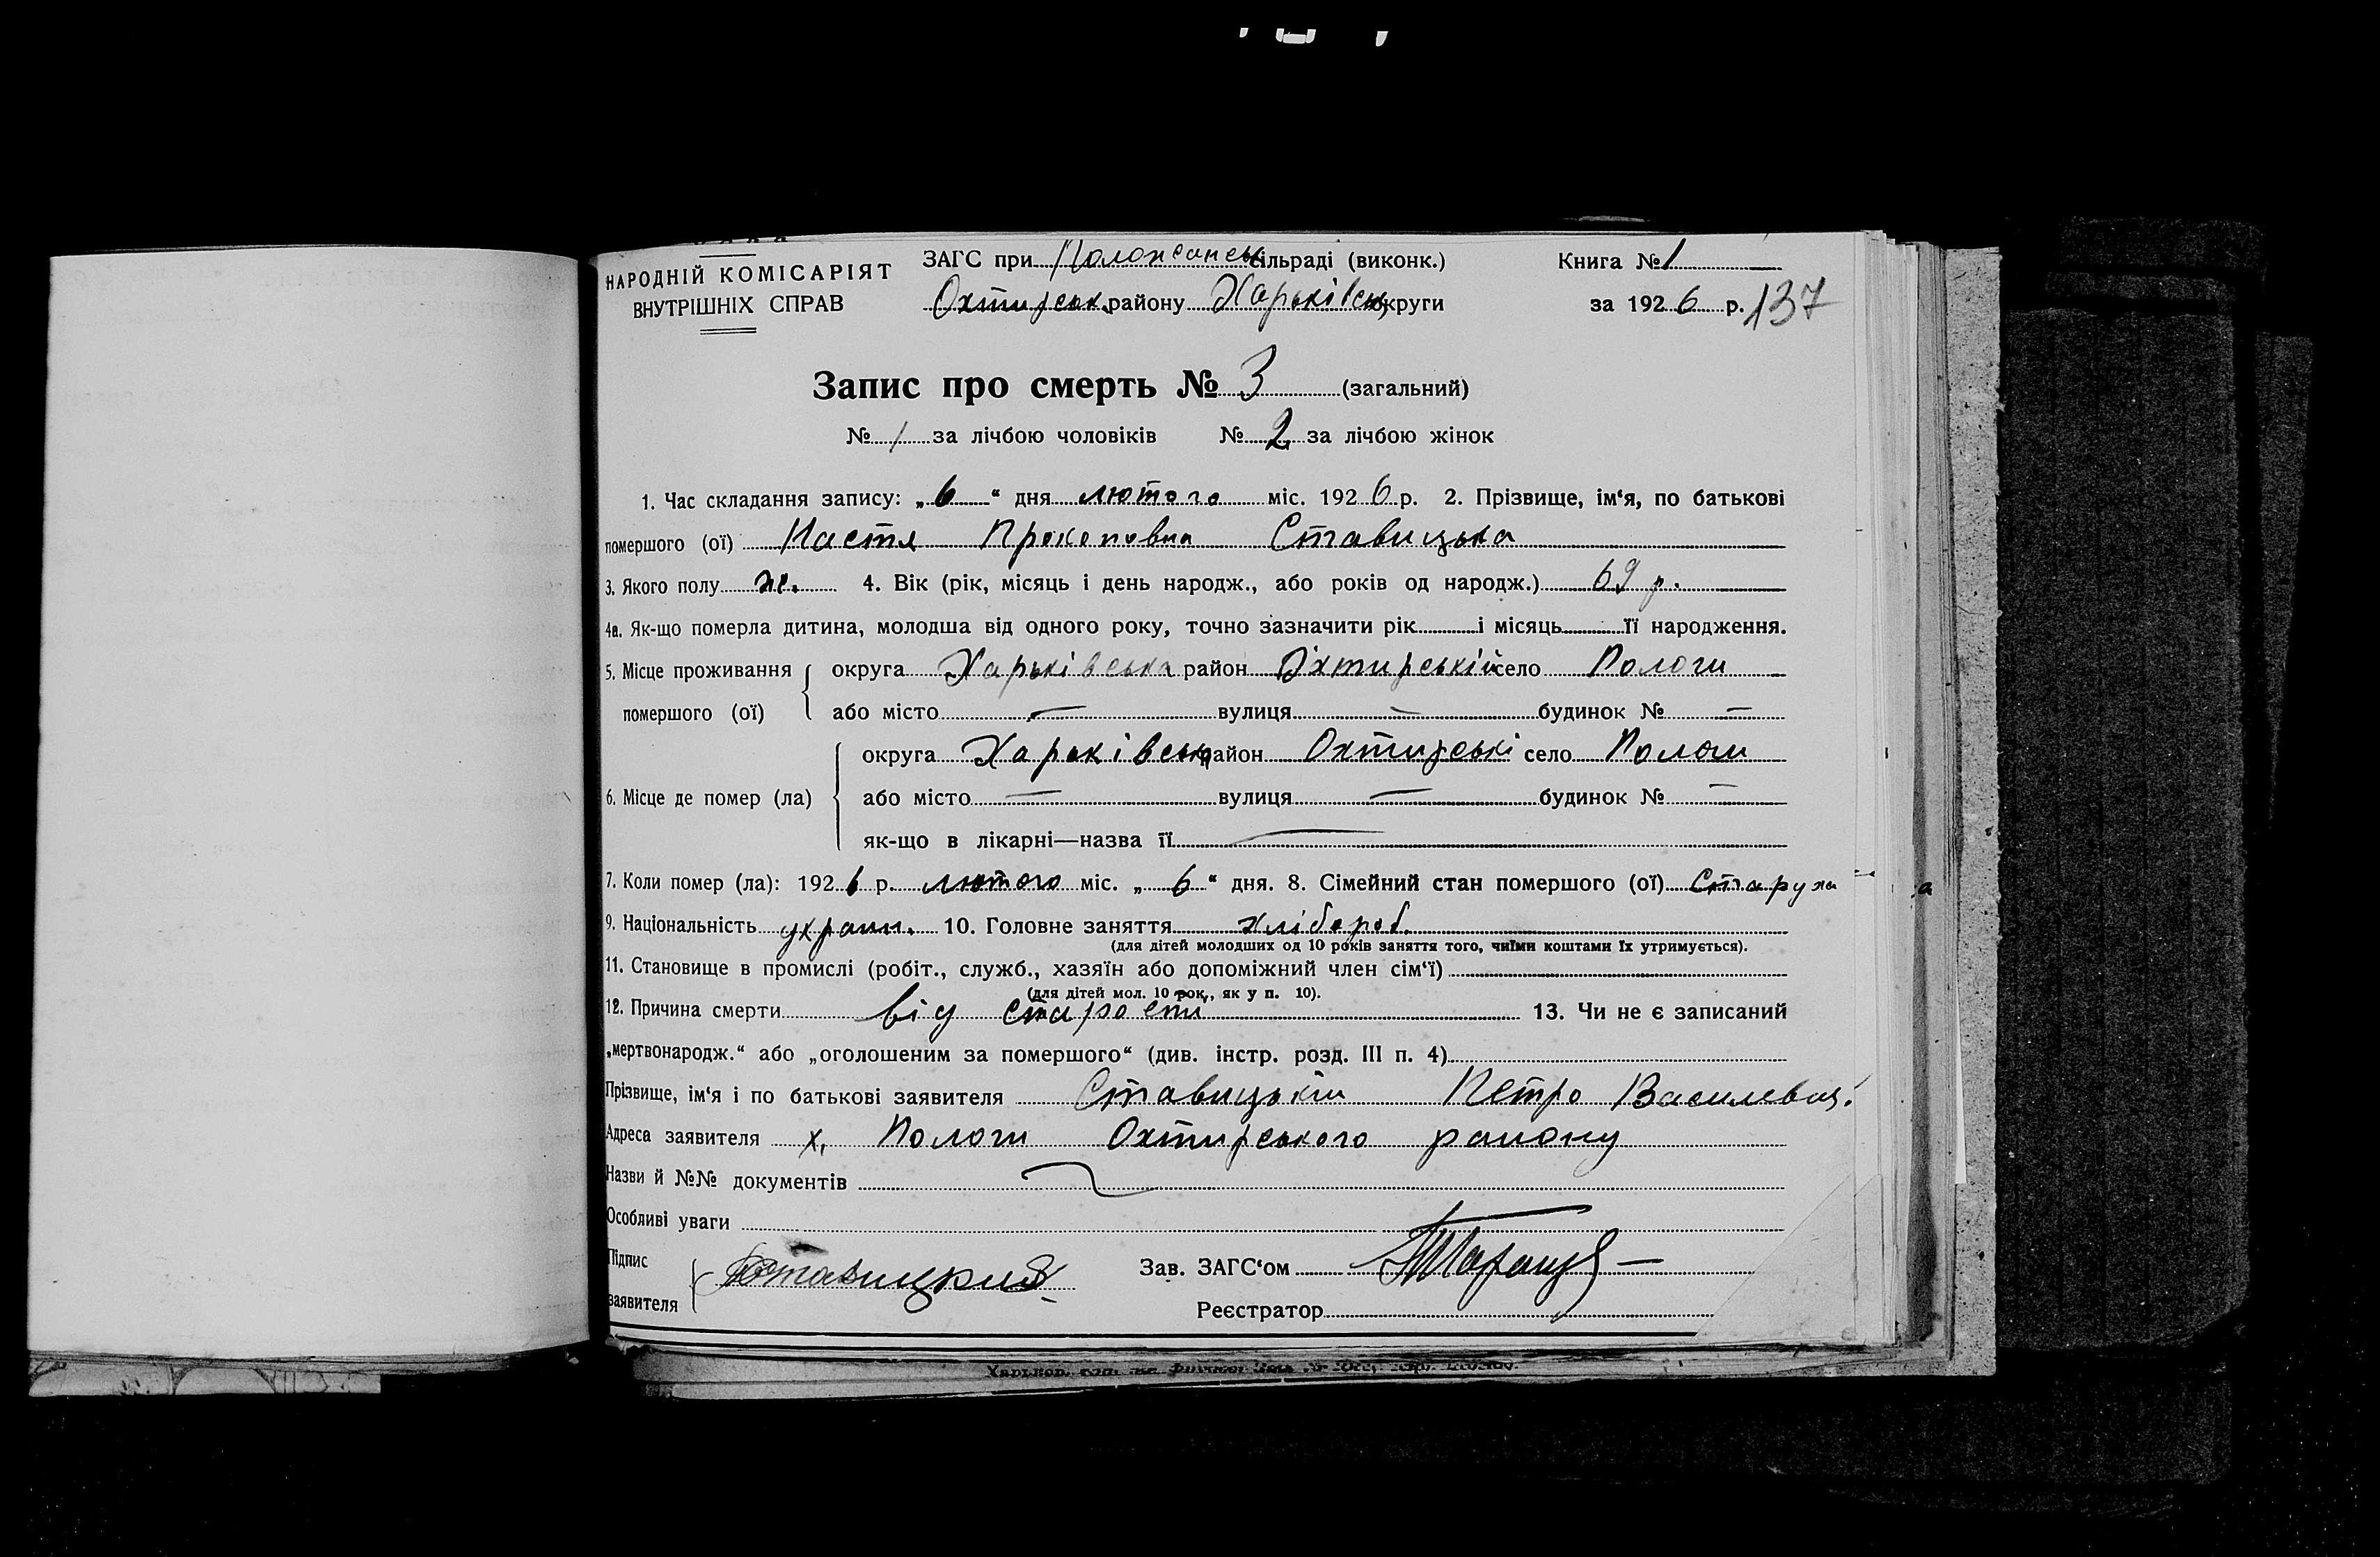 НАРОДНІЙ КОМІСАРІЯТ
ВНУТРІШНІХ СПРАВ
ЗАГС при сільраді (виконк.)
Охтирськ. району Харьківськ. округи
Книга № 1
за 1926 р. 137
Запис про смерть № 3 (загальний)
№ / за лічбою чоловіків № 2 за лічбою жінок
1. Час складання запису: „6“ дня лютого міс. 1926 р. 2. Прізвище, ім‘я, по батькові
помершого (ої) Настя Прокоповна Ставицька
3. Якого полу ж. 4. Вік (рік, місяць і день народж., або років од народж.) 69 р.
4а. Як-що померла дитина, молодша від одного року, точно зазначити рік і місяць її народження.
5. Місце проживання помершого (ої) округа Харьківська район Охтирській село Пологи
або місто — вулиця — будинок № —
6. Місце де помер (ла) округа Харьківськ район Охтирські село Пологи
або місто — вулиця — будинок № —
як-що в лікарні—назва її —
7. Коли помер (ла): 1926 р. лютого міс. „6“ дня. 8. Сімейний стан помершого (ої) Старуха
9. Національність украин. 10. Головне заняття хлібороб.
(для дітей молодших од 10 років заняття того, чиїми коштами їх утримується).
11. Становище в промислі (робіт., служб., хазяїн або допоміжний член сім‘ї)
(для дітей мол. 10 рок., як у п. 10).
12. Причина смерти від старости 13. Чи не є записаний
„мертвонародж.“ або „оголошеним за помершого“ (див. інстр. розд. III п. 4)
Прізвище, ім‘я і по батькові заявителя Ставицький Петро Василевич.
Адреса заявителя х. Пологи Охтирського району
Назви й №№ документів
Особливі уваги
Підпис заявителя Ставицкий Зав. ЗАГС‘ом
Реєстратор